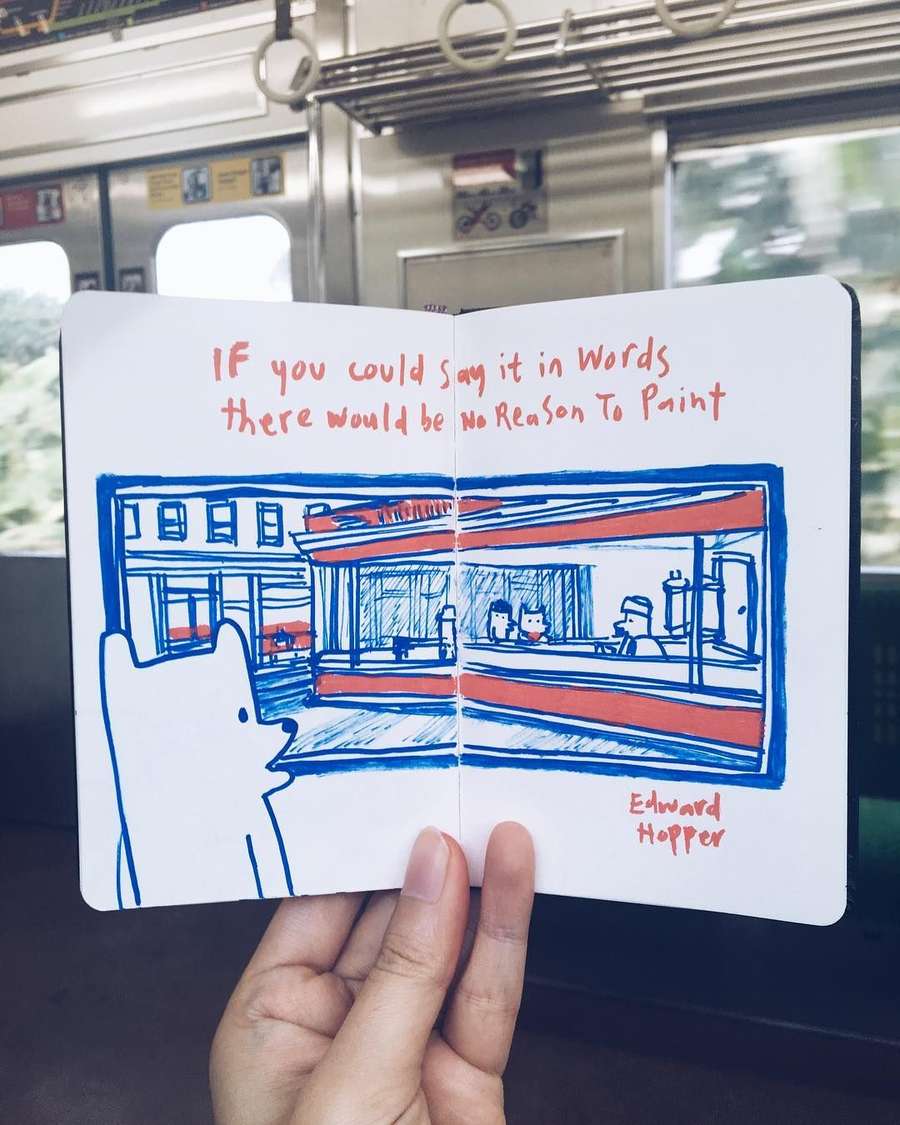 IF you could say it in Words
there would be No Reason To Paint
Edward
Hopper